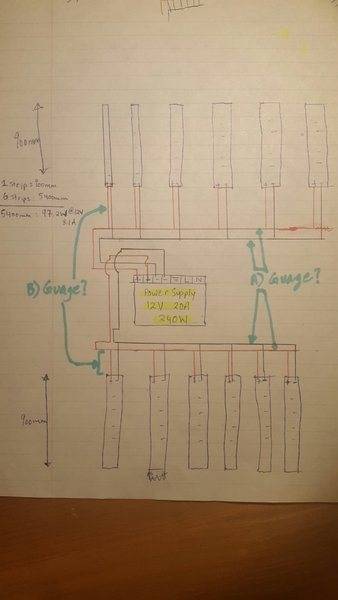 900mm
1 strip: 900mm
6 strips: 5400mm
5400mm: 97.2W @ 12V
8.1A
B) Guage?
A) Guage?
+ + - - L N
Power Supply
12V 20A
240W
900mm